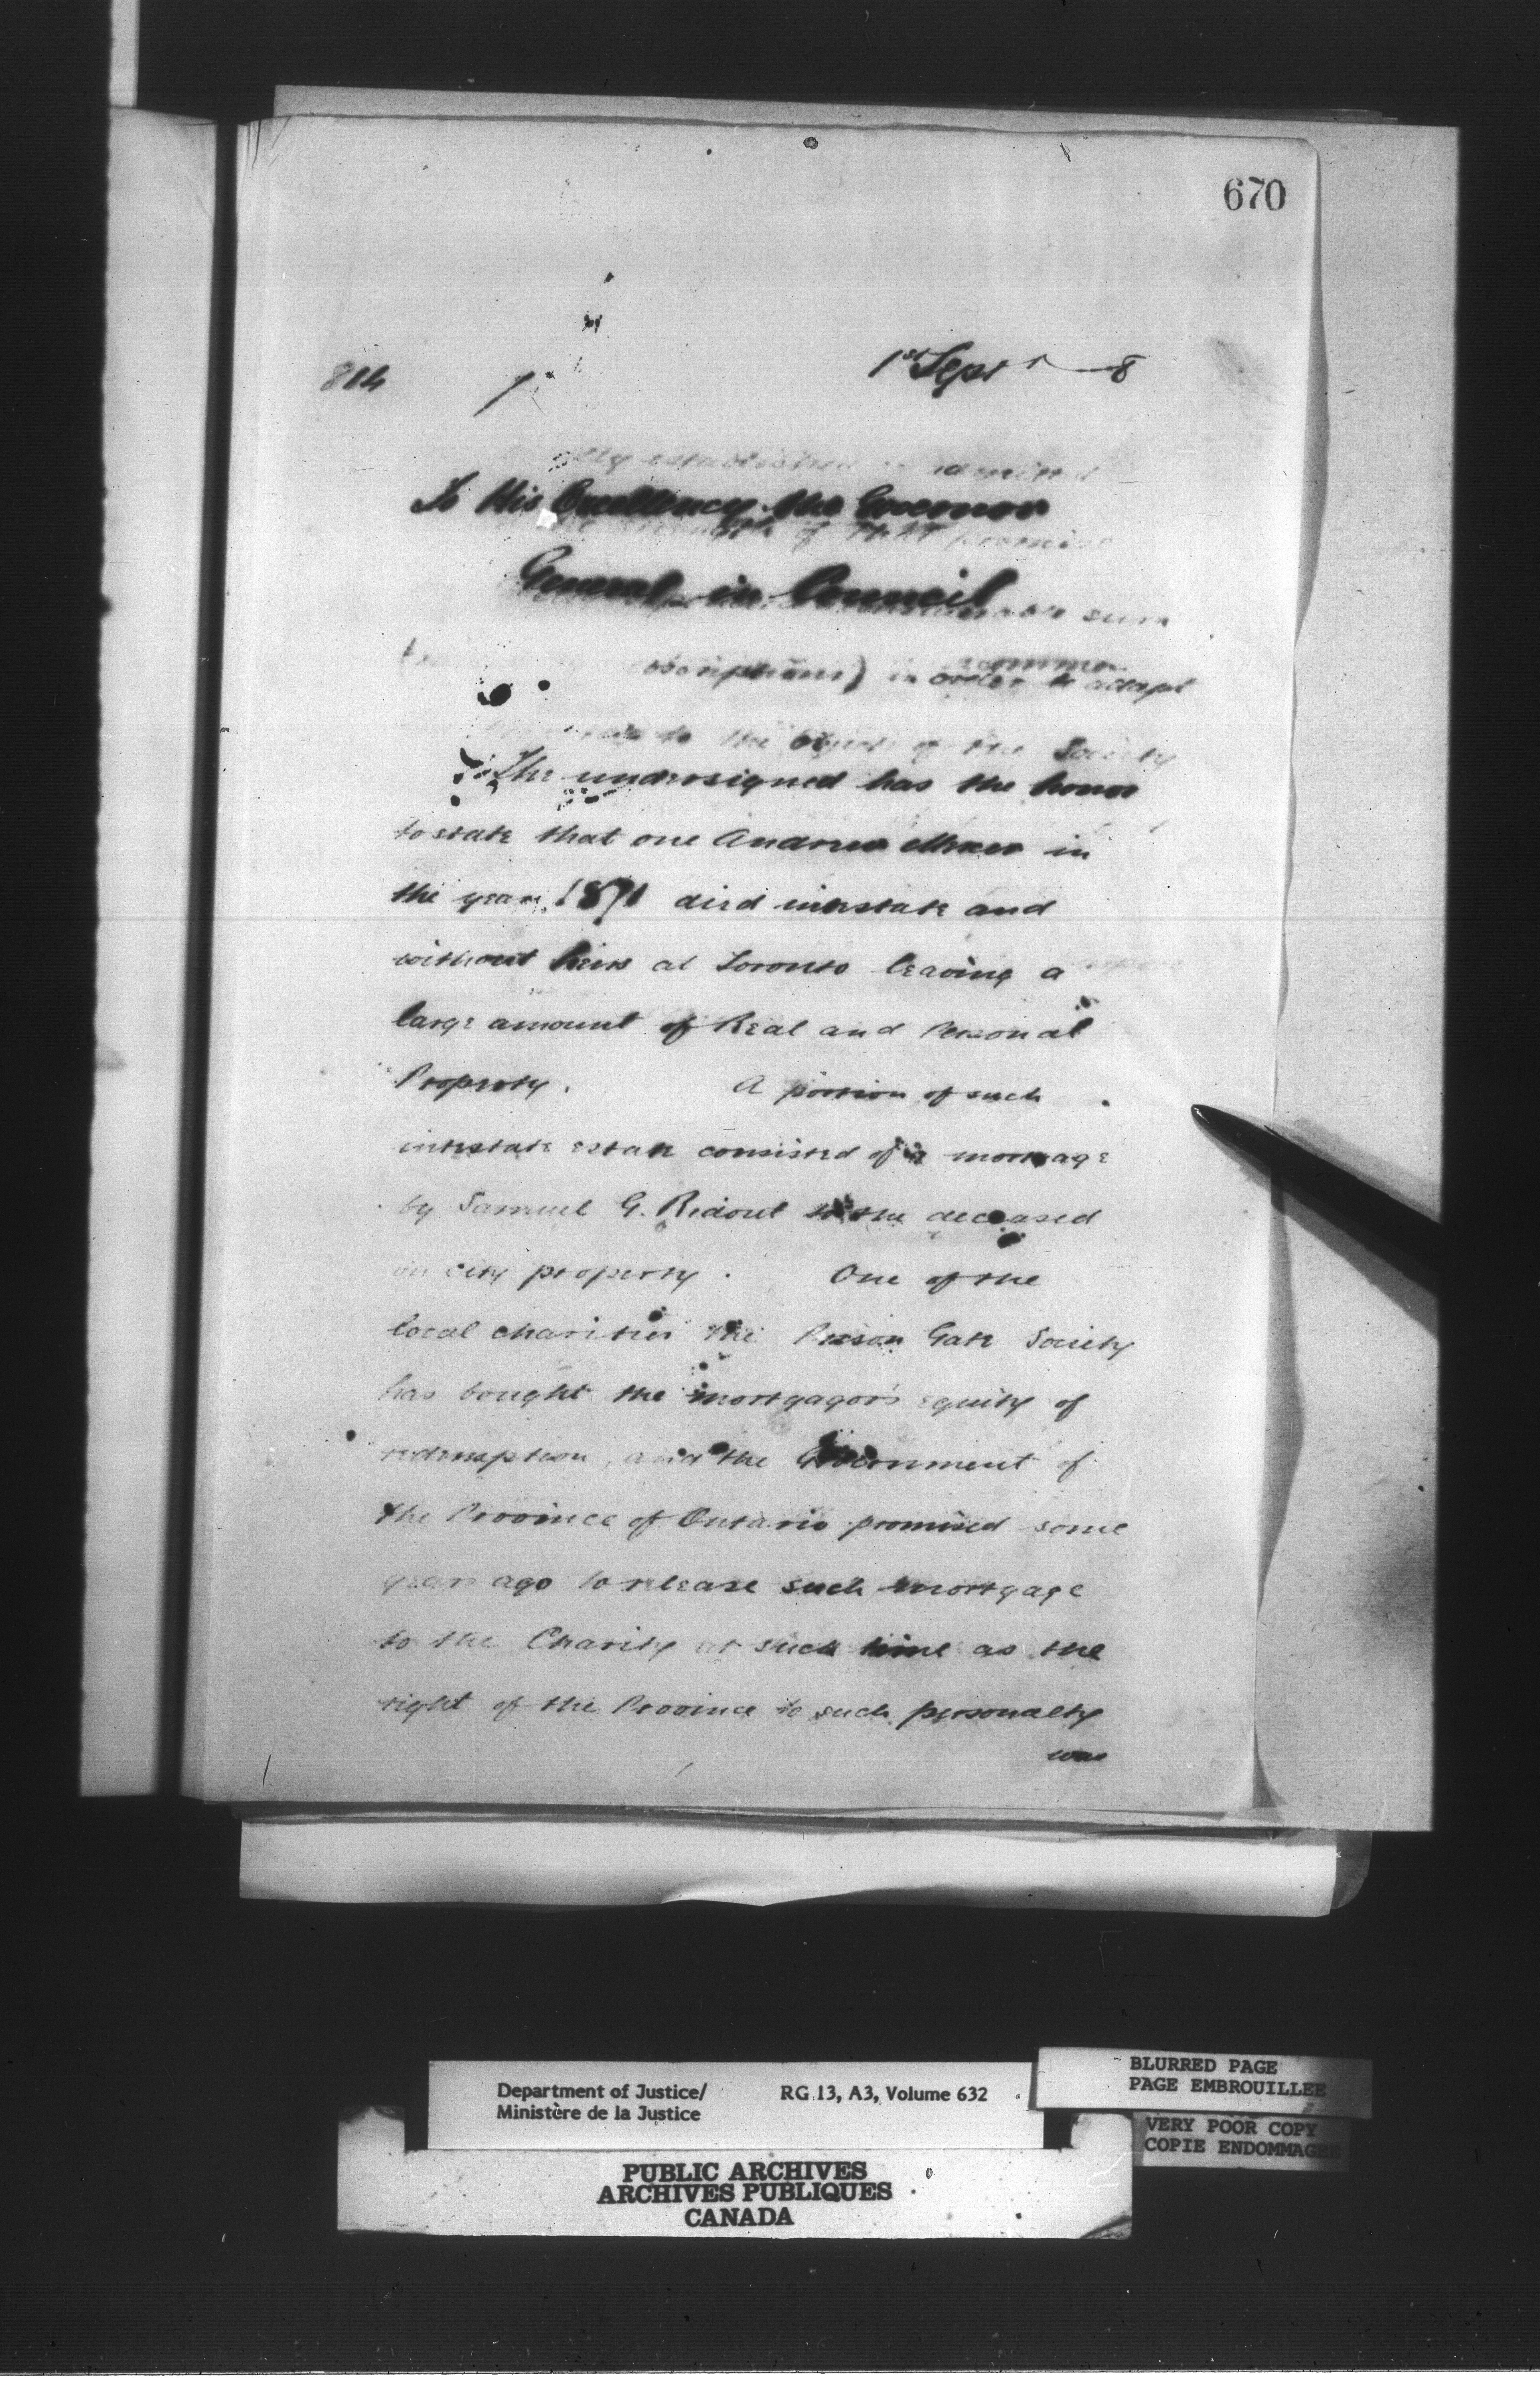 670
814
1st Sept 8
To His Excellency the Governor
General in Council
The undersigned has the honor
to state that one Andrew Mercer in
the year 1871 died intestate and
without heirs at Toronto leaving a
large amount of Real and Personal
Property. A portion of such
intestate estate consisted of a mortgage
by Samuel G. Ridout to the deceased
on city property. One of the
local charities the Prison Gate Society
has bought the mortgagor's equity of
redemption, and the Government of
the Province of Ontario promised some
years ago to release such mortgage
to the Charity at such time as the
right of the Province to such personalty
was
Department of Justice/
Ministère de la Justice
RG 13, A3, Volume 632
BLURRED PAGE
PAGE EMBROUILLEE
VERY POOR COPY
COPIE ENDOMMAGEE
PUBLIC ARCHIVES
ARCHIVES PUBLIQUES
CANADA